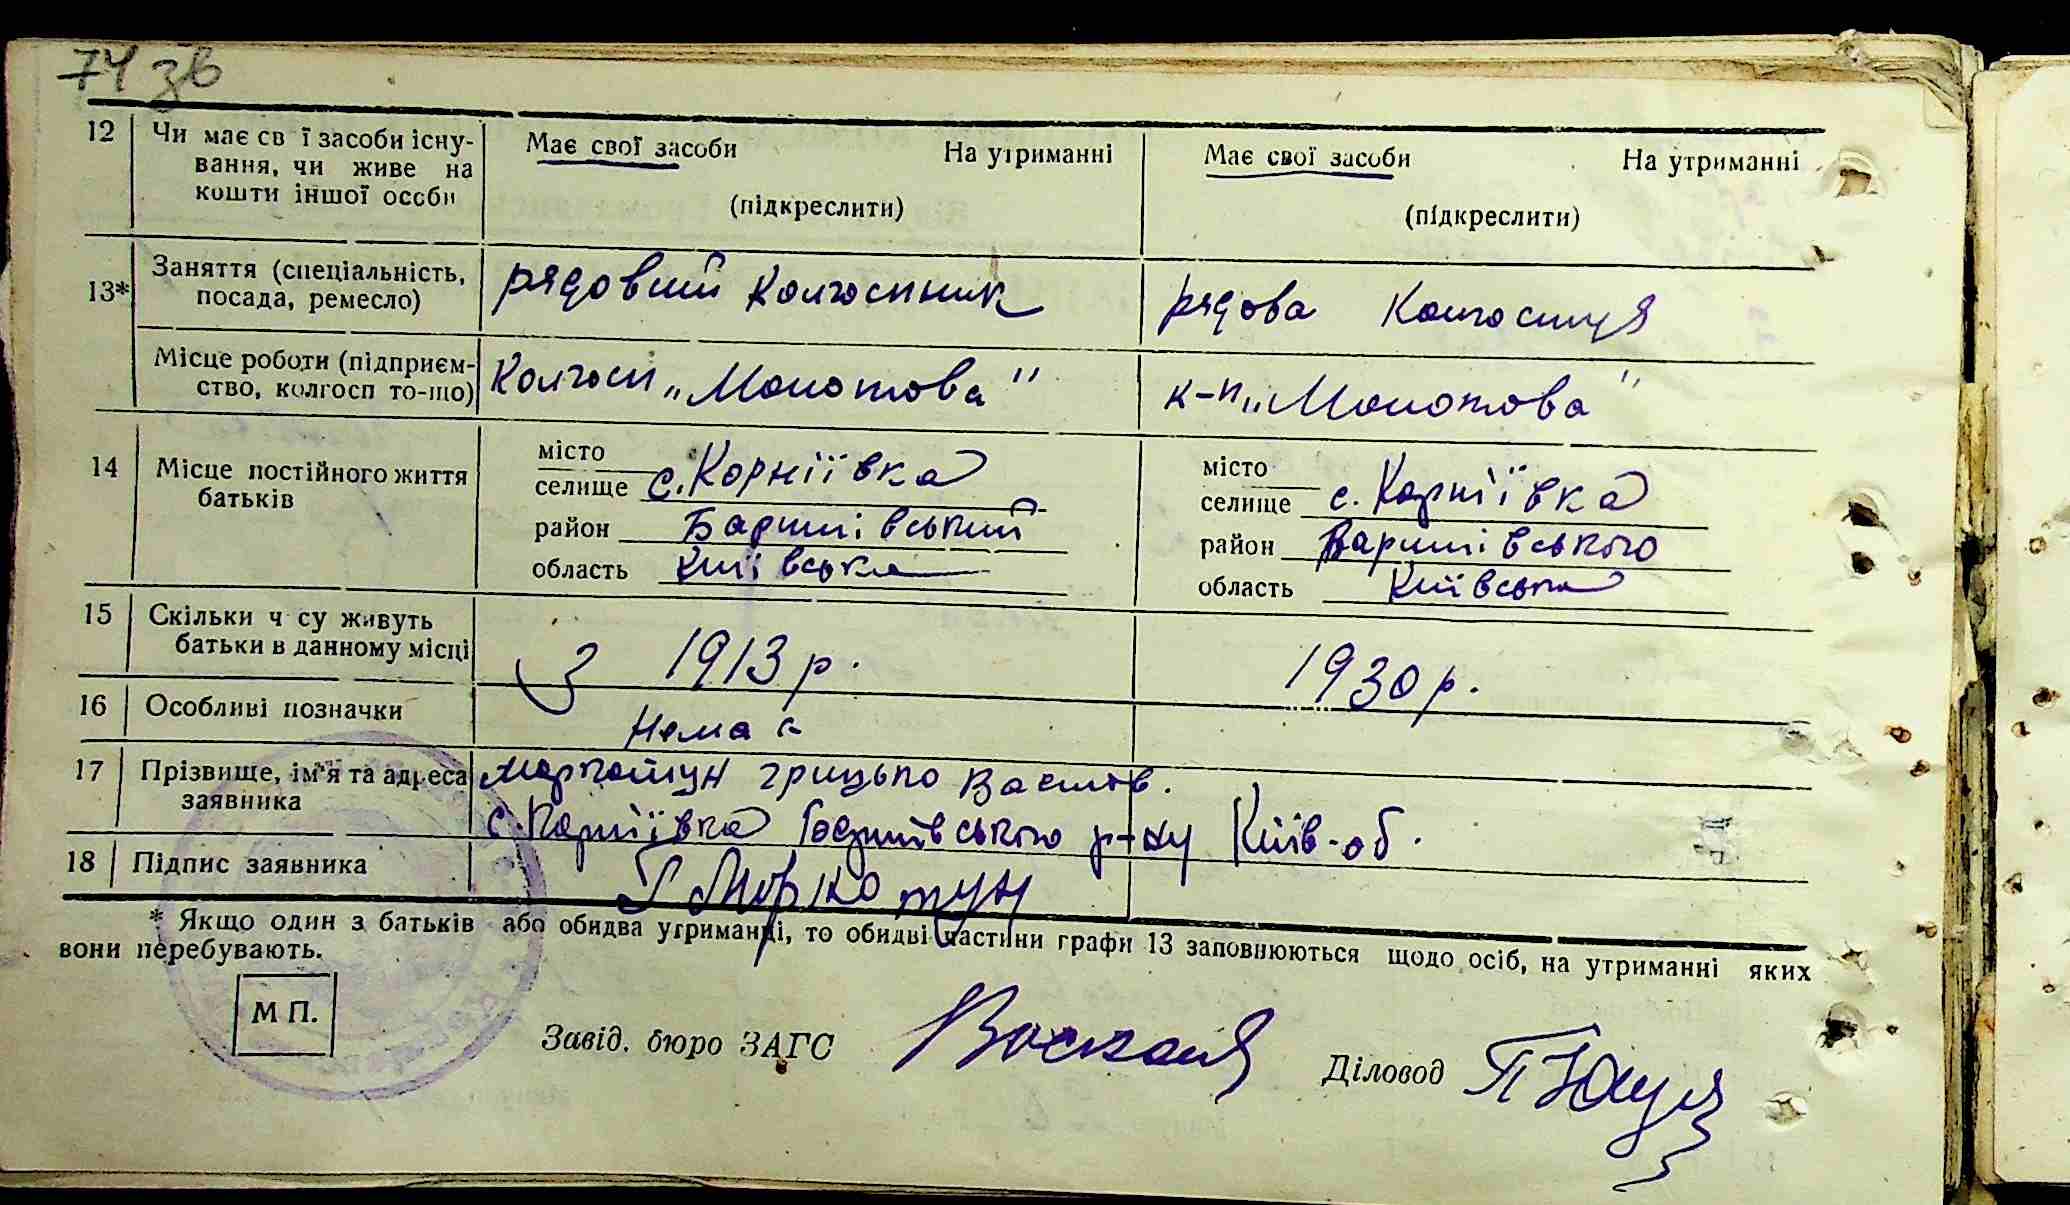 74 зв
12 Чи має св ї засоби існу- Має свої засоби На утриманні Має свої засоби На утриманні
вання, чи живе на
кошти іншої особи (підкреслити) (підкреслити)
13* Заняття (спеціальність, рядовий колгоспник рядова колгоспниця
посада, ремесло)
Місце роботи (підприєм- Колгосп „Молотова" к-п „Молотова"
ство, колгосп то-що)
14 Місце постійного життя місто місто
батьків селище с. Корніївка селище с. Корніївка
район Баришівський район Баришівського
область Київська область Київська
15 Скільки ч су живуть З 1913 р. 1930 р.
батьки в данному місці
16 Особливі позначки Нема є
17 Прізвище, ім'я та адреса Моркотун Грицько Василів.
заявника с. Корніївка Баришівського р-ну Київ-об.
18 Підпис заявника Г Моркотун
* Якщо один з батьків або обидва утриманці, то обидві частини графи 13 заповнюються щодо осіб, на утриманні яких
вони перебувають.
М П.
Завід. бюро ЗАГС
Діловод